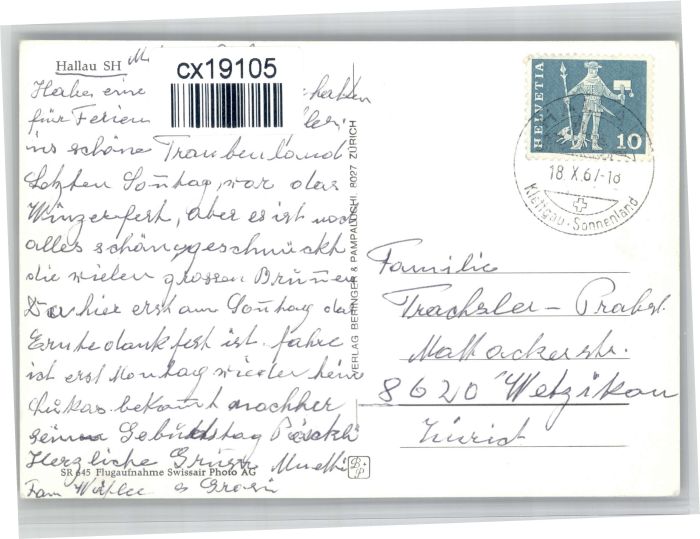 Hallau SH
cx19105
Habe eine
für Ferien
ins schöne Traubenland
Letzten Sontag war das
Winzerfest, aber es ist noch
alles schön geschmückt
die vielen grossen Brunnen
Da hier erst am Sontag das
Erntedankfest ist. fahre
ich erst Montag wieder heim
Lukas bekomt nachher
sein Geburtstag Päckli
Herzliche Grüsse Muetti
SR 645 Flugaufnahme Swissair Photo AG
Fam
VERLAG BERINGER & PAMPALUCHI, 8027 ZÜRICH
B+P
HELVETIA
10
18.X.67-18
Klettgau-Sonnenland
Familie
Trachsler-Probst.
Mattackerstr.
8620 Wetzikon
Zürich